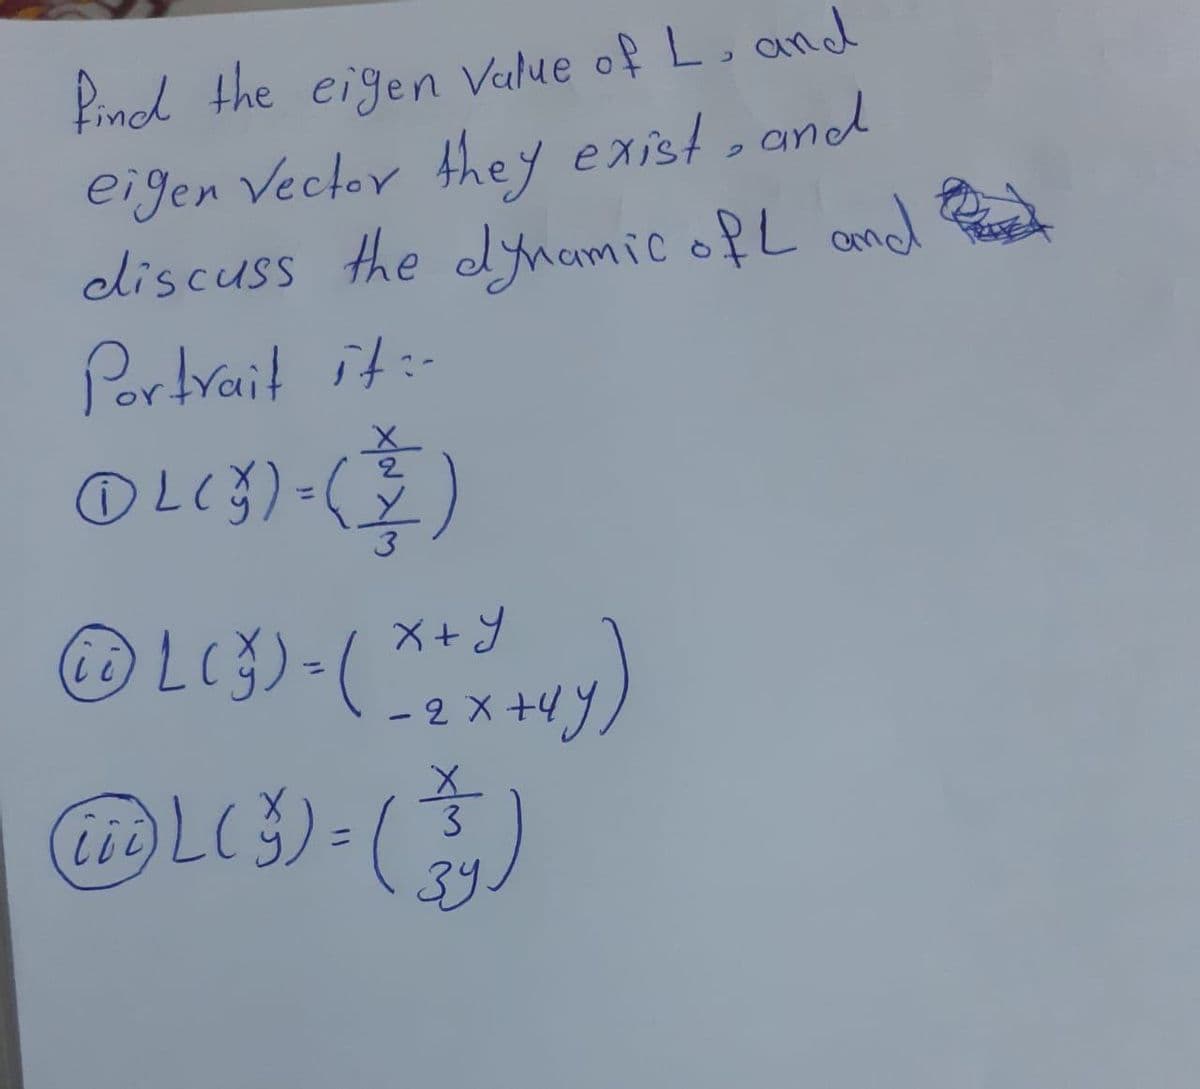 find the eigen value of L, and
eigen vector they exist, and
discuss the dynamic of L and
Portrait it:-
① L(x y) = (x/2 y/3)
ⓘⓘ L(x y) = (x+y -2x+4y)
ⓘⓘⓘ L(x y) = (x/3 3y)